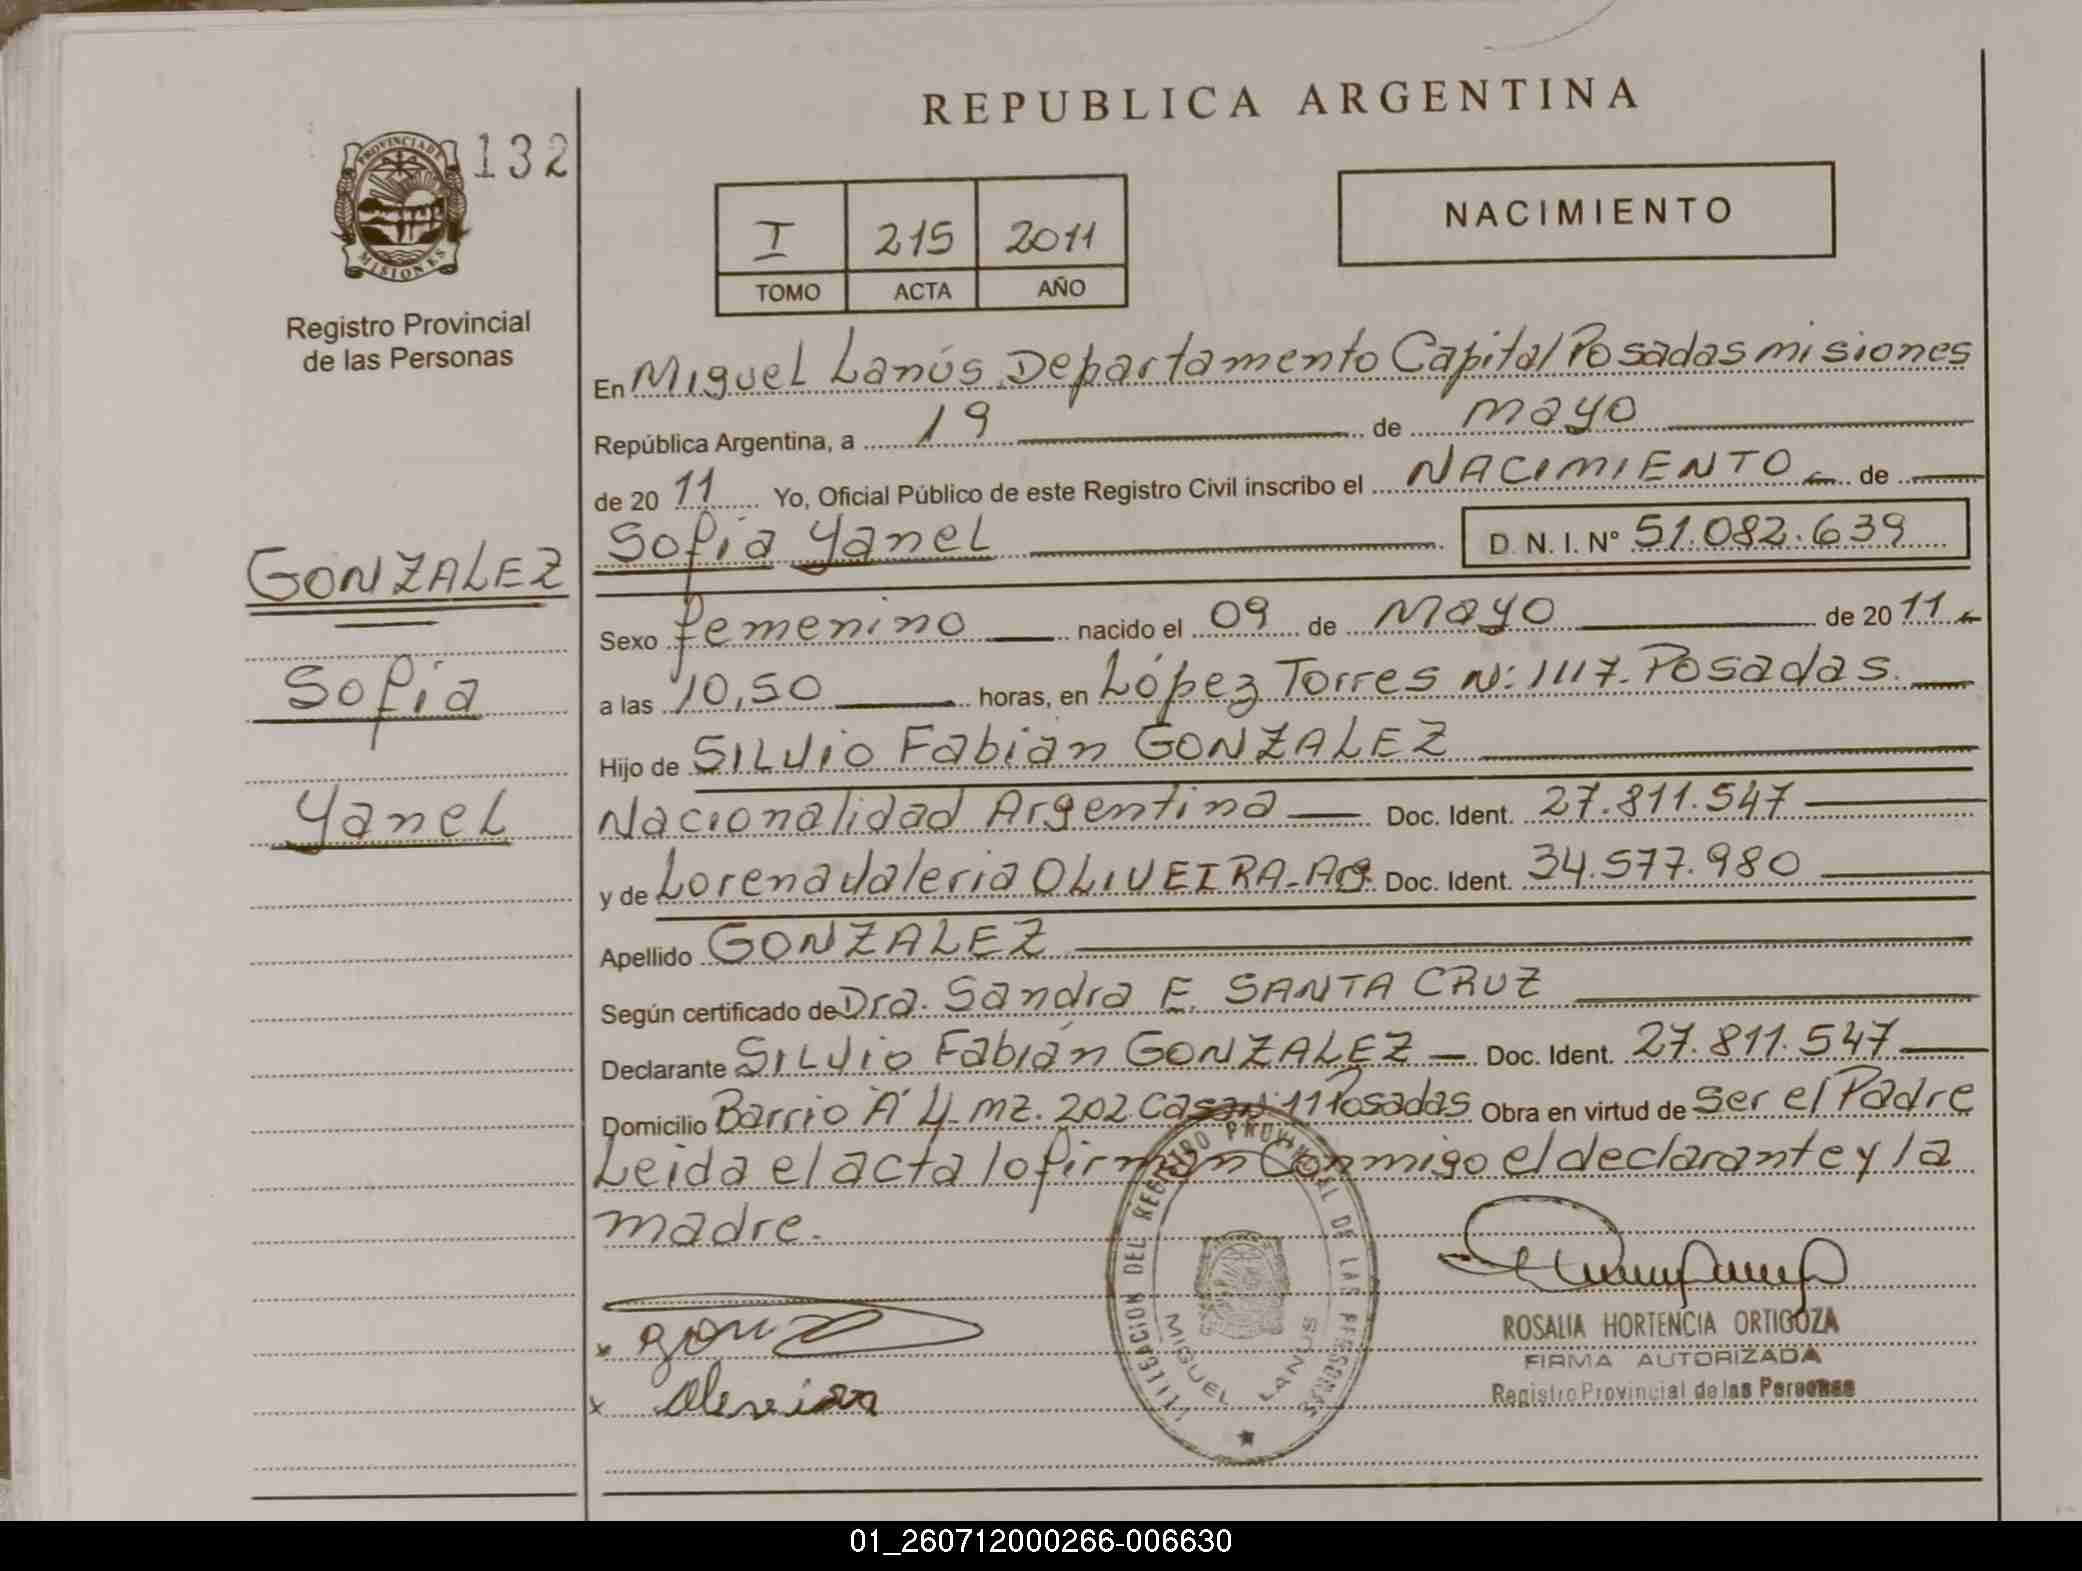 REPUBLICA ARGENTINA
PROVINCIA DE
MISIONES
132
Registro Provincial
de las Personas
I 215 2011
TOMO ACTA AÑO
NACIMIENTO
En Miguel Lanús Departamento Capital Posadas misiones
República Argentina, a 19 de mayo
de 2011 Yo, Oficial Público de este Registro Civil inscribo el NACIMIENTO de
Sofía Yanel D. N. I. Nº 51.082.639
GONZALEZ
Sofía
Yanel
Sexo femenino nacido el 09 de Mayo de 2011
a las 10,50 horas, en López Torres Nº 1117. Posadas.
Hijo de SILVIO Fabián GONZALEZ
Nacionalidad Argentina Doc. Ident. 27.811.547
y de Lorena Valeria OLIVEIRA-Arg. Doc. Ident. 34.577.980
Apellido GONZALEZ
Según certificado de Dra. Sandra E. SANTA CRUZ
Declarante SILVIO Fabián GONZALEZ Doc. Ident. 27.811.547
Domicilio Barrio A 4 mz. 202 Casa Nº 11 Posadas Obra en virtud de Ser el Padre
Leida el acta lo firman Conmigo el declarante y la
madre.
DELEGACION DEL REGISTRO PROVINCIAL DE LAS PERSONAS
MIGUEL LANUS
x Gonz
x
ROSALIA HORTENCIA ORTIGOZA
FIRMA AUTORIZADA
Registro Provincial de las Personas
01_260712000266-006630